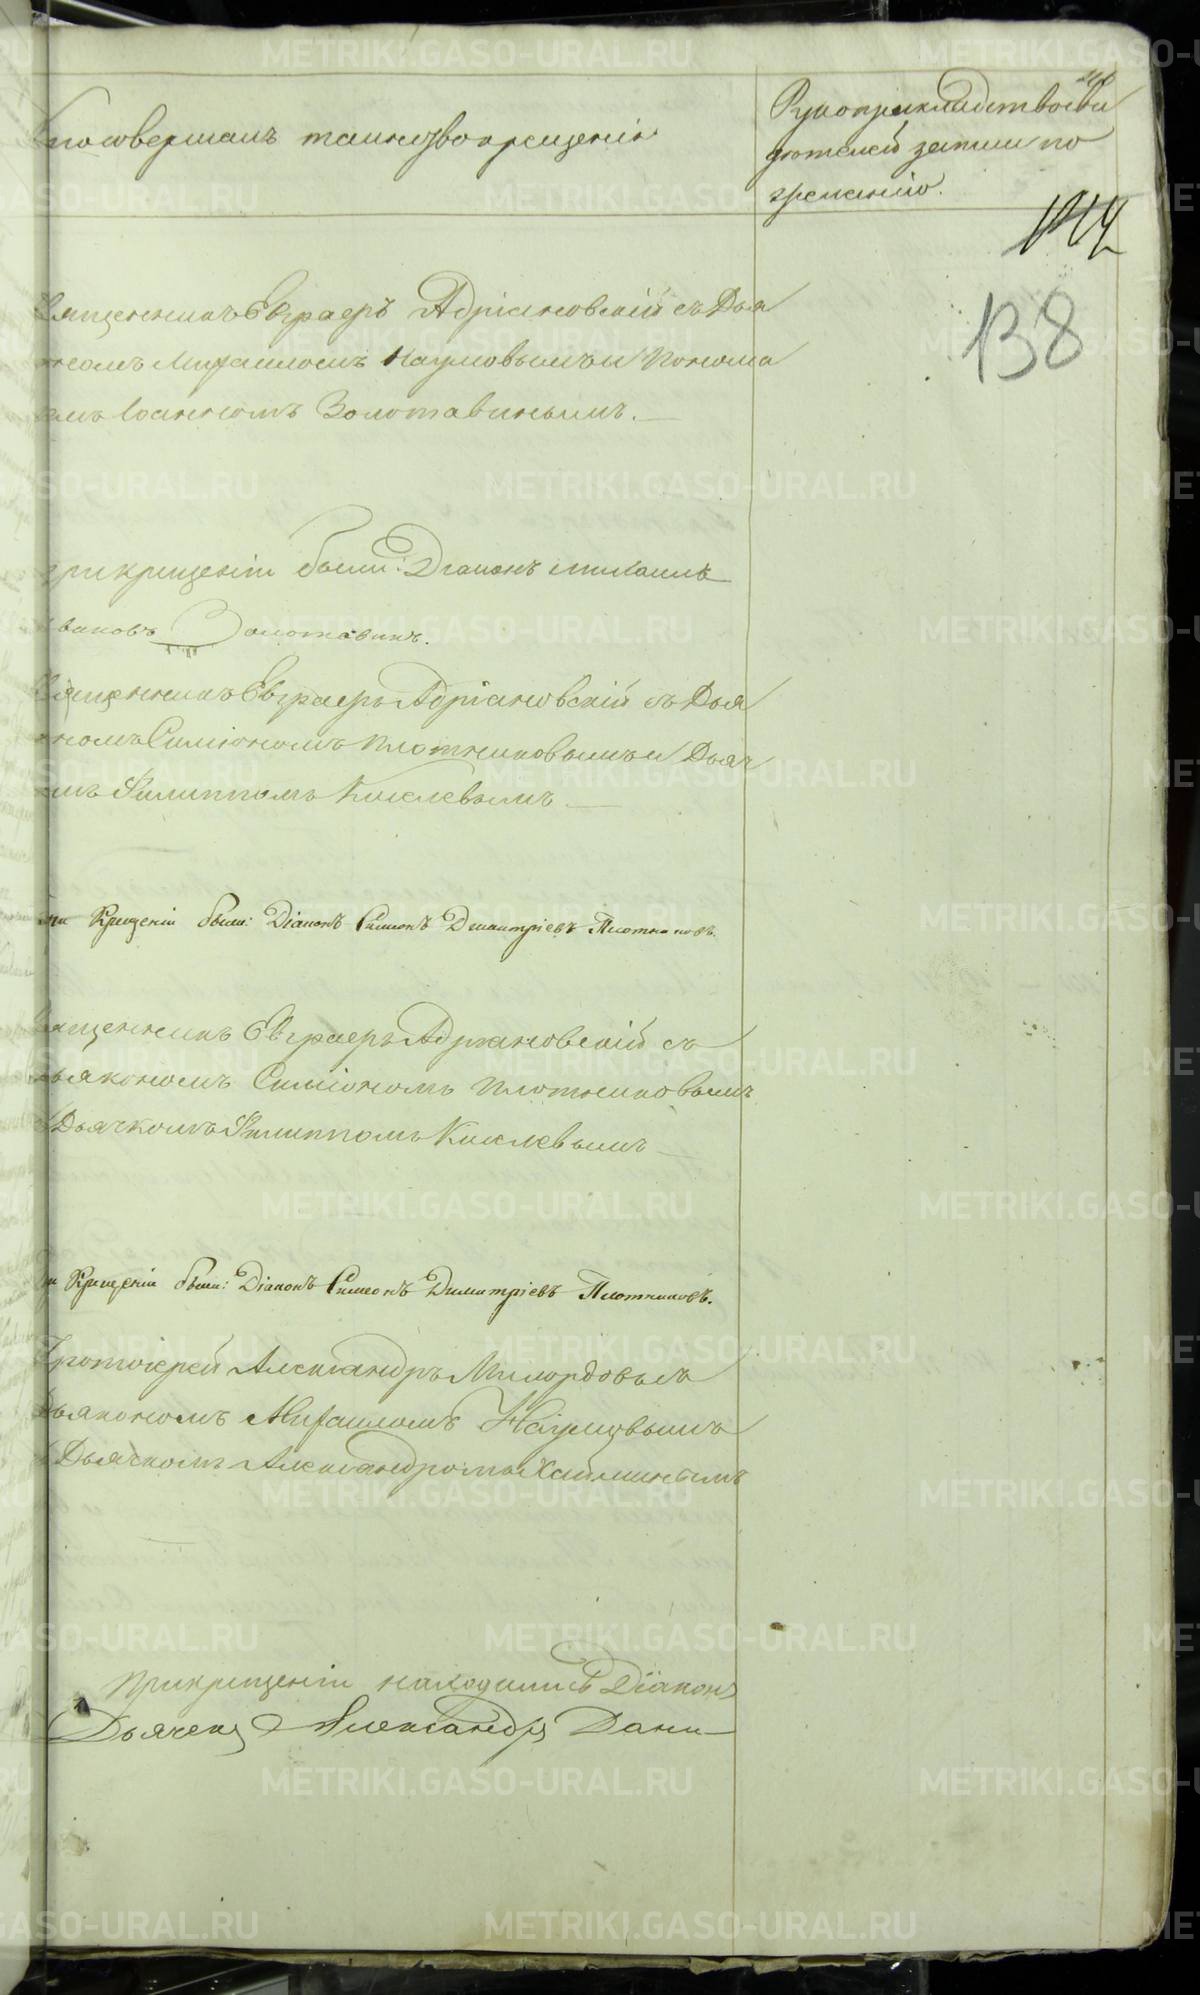 Кто совершалъ таинство крещенія
Рукоприкладство сви
дѣтелей записи по
желанію.
138
Священникъ Евграфъ Адріановскій съ Дья
кономъ Михаиломъ Наумовымъ и Понома
ремъ Іоанномъ Золотавинымъ.
При крещеніи были: Діаконъ Михаилъ
Золотавинъ.
Священникъ Евграфъ Адріановскій съ Дья
кономъ Симіономъ Плотниковымъ и Дьяч
комъ Филиппомъ Киселевымъ
При Крещеніи были: Діаконъ Симеонъ Димитріевъ Плотниковъ.
Священникъ Евграфъ Адріановскій съ
Дьякономъ Симіономъ Плотниковымъ
и Дьячкомъ Филиппомъ Киселевымъ
При Крещеніи были: Діаконъ Симеонъ Димитріевъ Плотниковъ.
Протоіерей Александръ Милордовъ съ
Дьякономъ Михаиломъ Наумовымъ
и Дьячкомъ Александромъ
При крещеніи находились Діаконъ
Дьячекъ Александръ Дани